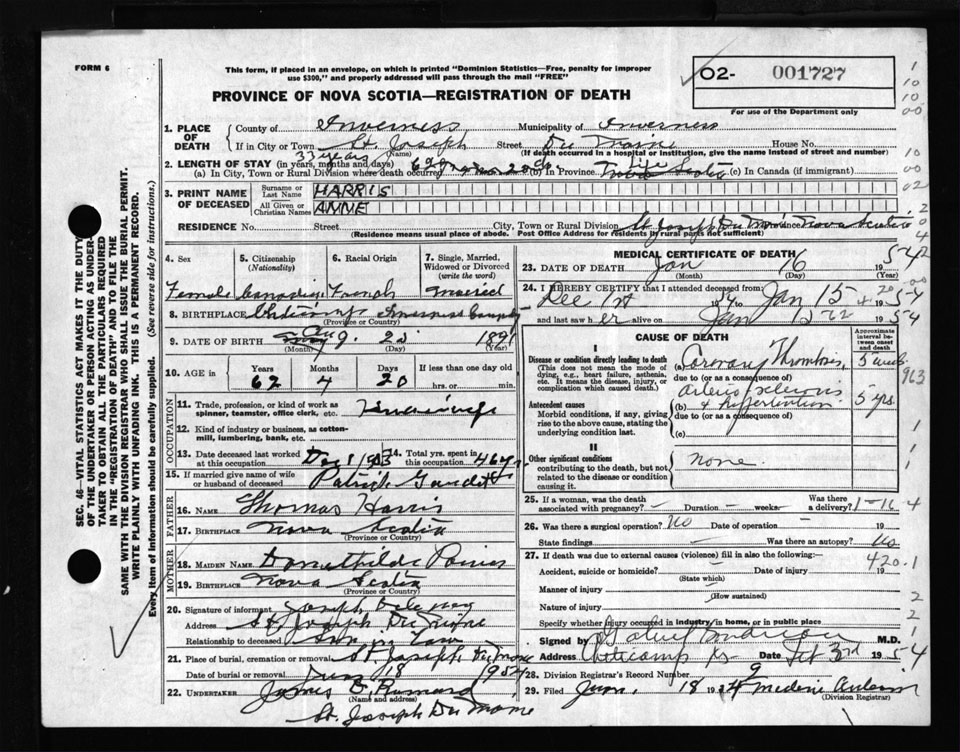 FORM 6
This form, if placed in an envelope, on which is printed "Dominion Statistics—Free, penalty for improper
use $300," and properly addressed will pass through the mail "FREE"
PROVINCE OF NOVA SCOTIA—REGISTRATION OF DEATH
O2- 001727
For use of the Department only
SEC. 46—VITAL STATISTICS ACT MAKES IT THE DUTY
OF THE UNDERTAKER OR PERSON ACTING AS UNDER-
TAKER TO OBTAIN ALL THE PARTICULARS REQUIRED
IN THE "REGISTRATION OF DEATH" AND TO FILE THE
SAME WITH THE DIVISION REGISTRAR WHO SHALL ISSUE THE BURIAL PERMIT.
WRITE PLAINLY WITH UNFADING INK. THIS IS A PERMANENT RECORD.
Every item of information should be carefully supplied. (See reverse side for instructions.)
1. PLACE OF DEATH
County of Inverness Municipality of Inverness
If in City or Town St. Joseph Street Du Moine House No.
(Name) (If death occurred in a hospital or institution, give the name instead of street and number)
2. LENGTH OF STAY (in years, months and days) 33 years
(a) In City, Town or Rural Division where death occurred (b) In Province Life Nova Scotia (c) In Canada (if immigrant)
3. PRINT NAME OF DECEASED
Surname or Last Name HARRIS
All Given or Christian Names ANNE
RESIDENCE No. Street City, Town or Rural Division St Joseph Du Moine Province Nova Scotia
(Residence means usual place of abode. Post Office Address for residents in rural parts not sufficient)
4. Sex
5. Citizenship (Nationality)
6. Racial Origin
7. Single, Married, Widowed or Divorced (write the word)
Female Canadian French Married
8. BIRTHPLACE Cheticamp Inverness County
(Province or Country)
9. DATE OF BIRTH 1891
(Month) (Day) (Year)
10. AGE in Years Months Days If less than one day old
62 4 20 hrs. or min.
OCCUPATION
11. Trade, profession, or kind of work as
spinner, teamster, office clerk, etc. Housewife
12. Kind of industry or business, as cotton-
mill, lumbering, bank, etc.
13. Date deceased last worked
at this occupation Dec 1 1953
14. Total yrs. spent in
this occupation 46 yrs
15. If married give name of wife
or husband of deceased Patrick Gaudet
FATHER
16. NAME Thomas Harris
17. BIRTHPLACE Nova Scotia
(Province or Country)
MOTHER
18. MAIDEN NAME Domithilde
19. BIRTHPLACE Nova Scotia
(Province or Country)
20. Signature of informant Joseph Delaney
Address St Joseph Du Moine
Relationship to deceased Son in Law
21. Place of burial, cremation or removal St. Joseph Du Moine
Date of burial or removal Jan 18 1954
22. UNDERTAKER James
(Name and address)
St. Joseph Du Moine
MEDICAL CERTIFICATE OF DEATH
23. DATE OF DEATH Jan 16 1954
(Month) (Day) (Year)
24. I HEREBY CERTIFY that I attended deceased from:
Dec 1st to Jan 15 1954
and last saw her alive on Jan 1954
CAUSE OF DEATH
Approximate interval between onset and death
I
Disease or condition directly leading to death
(This does not mean the mode of
dying, e.g., heart failure, asthenia,
etc. It means the disease, injury, or
complication which caused death.)
(a) Coronary Thrombosis 5 weeks
due to (or as a consequence of)
Antecedent causes
Morbid conditions, if any, giving
rise to the above cause, stating the
underlying condition last.
(b) Arteriosclerosis & hypertension 5 yrs.
due to (or as a consequence of)
(c)
II
Other significant conditions
contributing to the death, but not
related to the disease or condition
causing it.
none
25. If a woman, was the death
associated with pregnancy? — Duration — weeks. Was there a delivery?
26. Was there a surgical operation? No Date of operation — 19
State findings — Was there an autopsy? No
27. If death was due to external causes (violence) fill in also the following:—
Accident, suicide or homicide? Date of injury 19
(State which)
420.1
Manner of injury
(How sustained)
Nature of injury
Specify whether injury occurred in industry, in home, or in public place
Signed by M.D.
Address Cheticamp NS Date Feb 3rd 1954
28. Division Registrar's Record Number 9
29. Filed Jan. 18 1954
(Division Registrar)